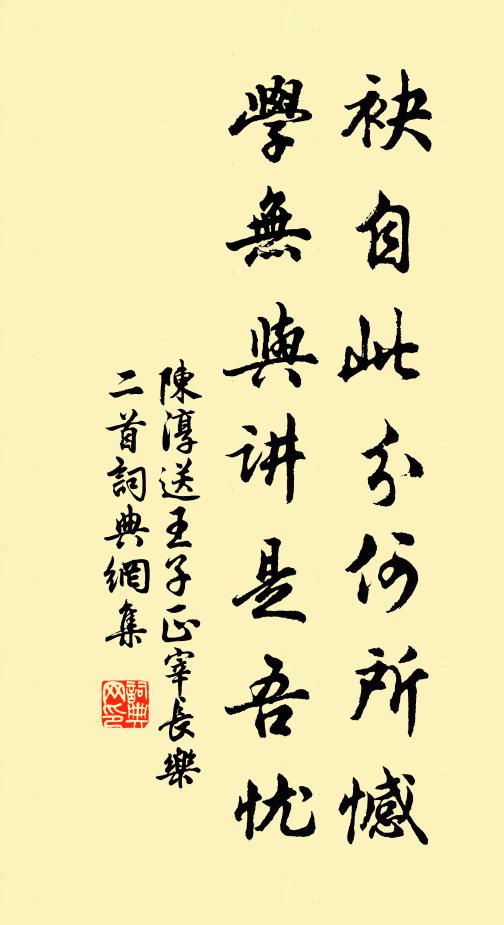 袂自此分何所憾
學無與讲是吾忧
陳淳送王子正宰長樂
二首詞典網集
詞典
网印